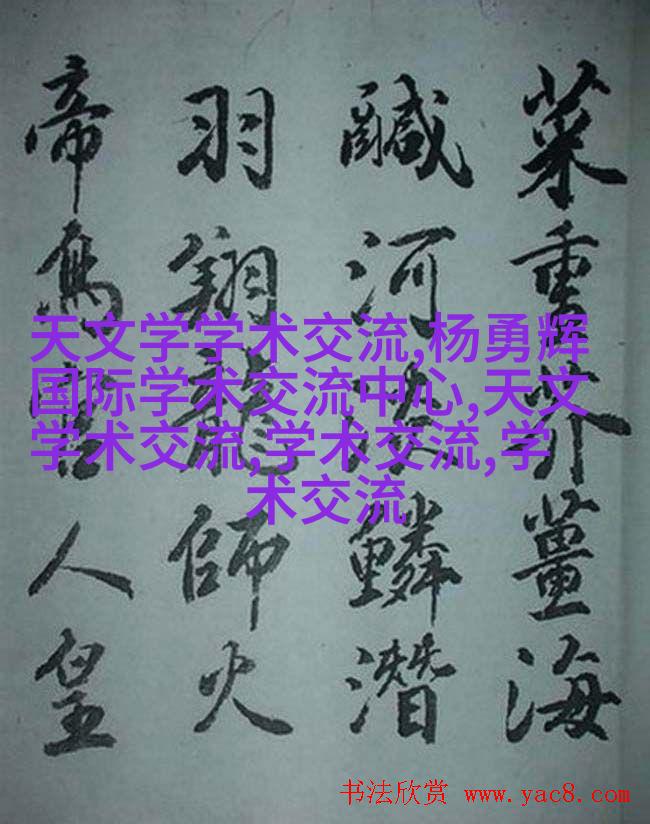 菜重芥薑海
鹹河淡鱗潛
羽翔龍師火
帝鳥官人皇
天文学学术交流,杨勇辉
国际学术交流中心,天文
学术交流,学术交流,学
术交流
书法欣赏 www.yac8.com